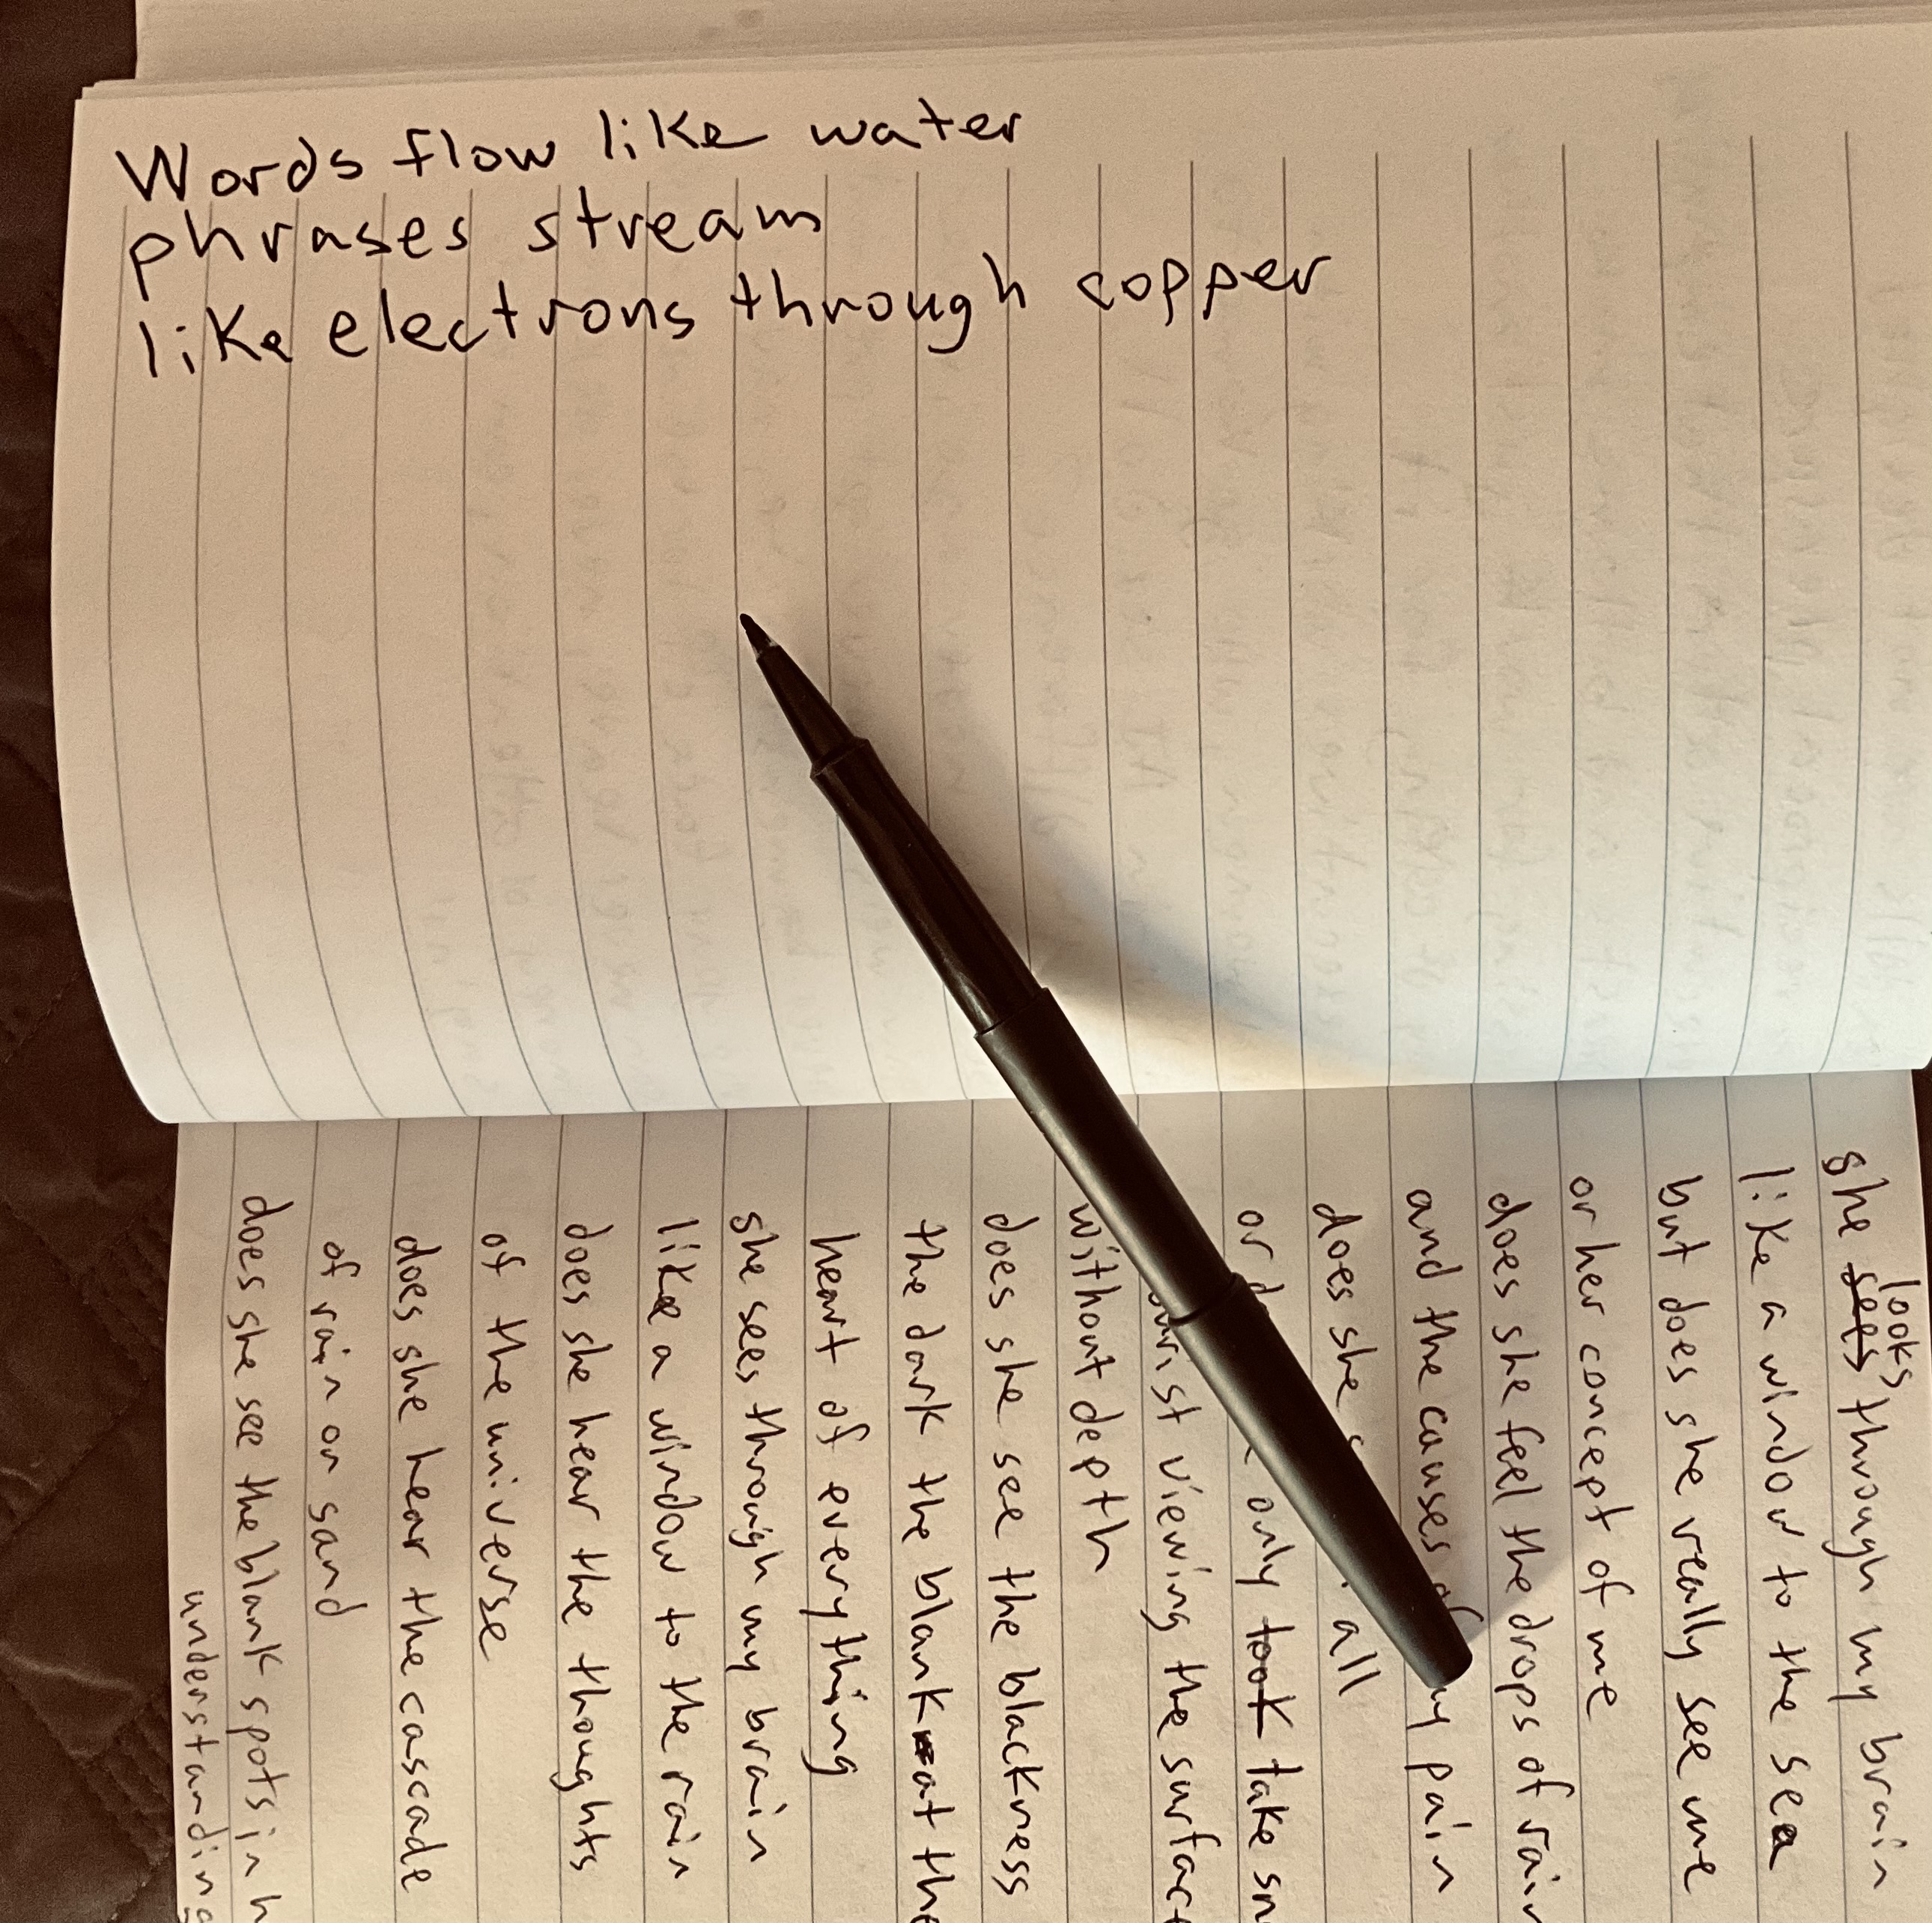 Words flow like water
phrases stream
like electrons through copper
she sees looks through my brain
like a window to the sea
but does she really see me
or her concept of me
does she feel the drops of rain
and the causes of my pain
does she all
or only took take
viewing the surface
without depth
does she see the blackness
the dark the blank at the
heart of everything
she sees through my brain
like a window to the rain
does she hear the thoughts
of the universe
does she hear the cascade
of rain or sand
does she see the blank spots in
understanding